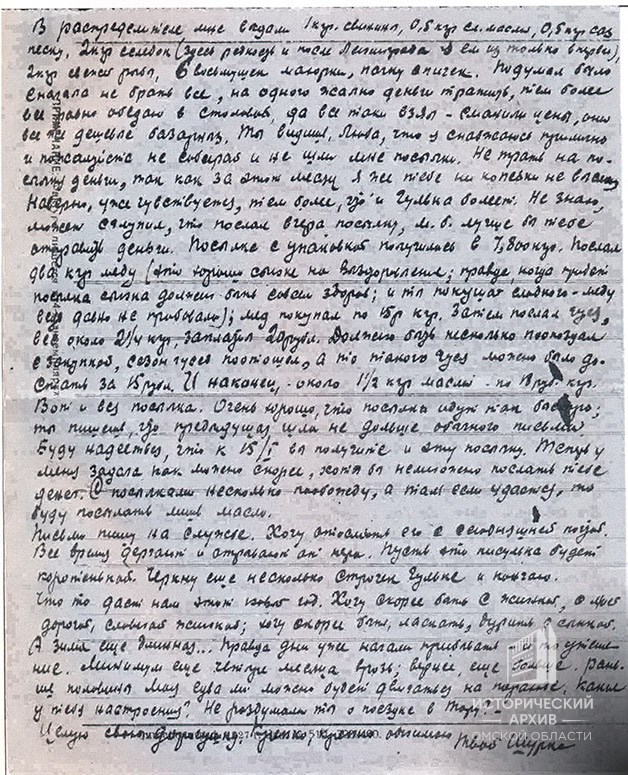 В распределителе мне выдали 1 кгр. свинины, 0,5 кгр сл. масла, 0,5 кгр сах
песку, 2 кгр селедок (здесь редкость и после Ленинграда я ем их только впервые),
2 кгр свежей рыбы, 6 восьмушек махорки, пачку спичек. Подумал было
сначала не брать все, на одного жалко деньги тратить, тем более
все равно обедаю в столовой, да все таки взял - сманили цены, они
все же дешевле базарных. Ты видишь, Люба, что я снабжаюсь прилично
и пожалуйста не собирай и не шли мне посылки. Не трать на по-
сылку деньги, так как за этот месяц я же тебе ни копейки не выслал
Наверно, уже чувствуется, тем более, что и Гулька болеет. Не знаю,
может глупил, что послал вчера посылку, м.б. лучше бы тебе
отправить деньги. Посылка с упаковкой получилась в 7,800 кгр. Послал
два кгр меду (это хорошо сынке на выздоровление; правда, когда придет
посылка сынка должен быть совсем здоров; и ты покушай сладкого - меду
вы давно не пробовали); мед покупал по 15 р кгр. Затем послал гуся,
вес около 2 1/4 кгр, заплатил 20 рубл. Должно быть несколько поопоздал
с закупкой, сезон гусей поотошел, а то такого гуся можно было до-
стать за 15 рубл. И наконец, - около 1 1/2 кгр масла - по 18 руб. кгр.
Вот и вся посылка. Очень хорошо, что посылки идут так быстро;
ты пишешь, что предыдущая шла не дольше обычного письма
Буду надеяться, что к 15/I вы получите и эту посылку. Теперь у
меня задача как можно скорее, хотя бы немножко послать тебе
денег. С посылками несколько пообожду, а там если удастся, то
буду посылать лишь масло.
Письмо пишу на службе. Хочу отослать его с сегодняшней почтой.
Все время дергают и отрывают от пера. Пусть это письмо будет
коротенькой. Черкну еще несколько строчек Гульке и кончаю.
Что то даст нам этот новый год. Хочу скорее быть с женкой, с моей
дорогой, славной женкой; хочу скорее быть, ласкать, дурить с сынкой.
А зима еще длинная... Правда дни уже начали прибывать - и то утеше-
ние. Минимум еще четыре месяца врозь; вернее, еще больше. Рань-
ше половины мая едва ли можно будет двигаться на пароходе. Какое
у тебя настроение? Не раздумала ты о поездке в Тару?
Целую свою дорогушу. Крепко, крепко обнимаю
Твой Шурка
ИСТОРИЧЕСКИЙ
АРХИВ
ОМСКОЙ ОБЛАСТИ